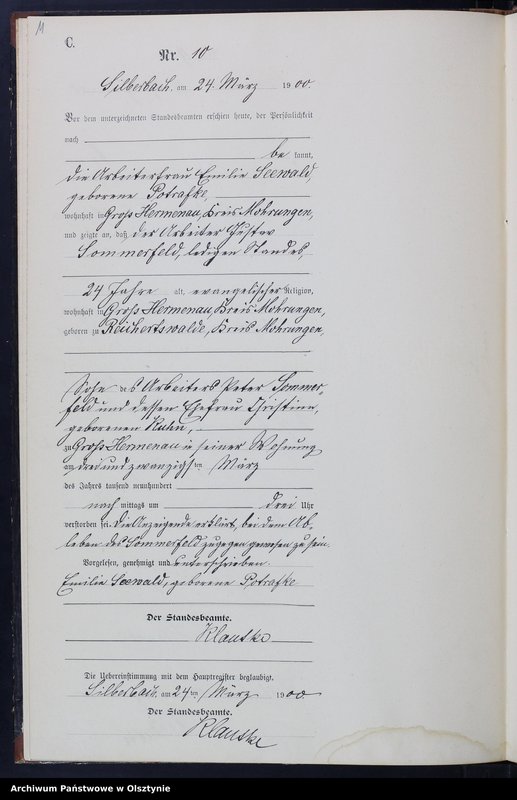 11
C.
Nr. 10
Silberbach, am 24. März 1900.
Vor dem unterzeichneten Standesbeamten erschien heute, der Persönlichkeit
nach
be kannt,
die Arbeiterfrau Emilie Seewald,
geborene Potrafke,
wohnhaft in Groß Hermenau, Kreis Mohrungen,
und zeigte an, daß der Arbeiter Gustav
Sommerfeld, ledigen Standes,
24 Jahre alt, evangelischer Religion,
wohnhaft in Groß Hermenau, Kreis Mohrungen,
geboren zu Reichertswalde, Kreis Mohrungen,
Sohn des Arbeiters Peter Sommer-
feld und dessen Ehefrau Christine,
geborenen Kuhn,
zu Groß Hermenau in seiner Wohnung
am drei und zwanzigsten März
des Jahrs tausend neunhundert
nach mittags um drei Uhr
verstorben sei. Die Anzeigende erklärt, bei dem Ab-
leben des Sommerfeld zugegen gewesen zu sein.
Vorgelesen, genehmigt und unterschrieben.
Emilie Seewald, geborene Potrafke
Der Standesbeamte.
Klautke
Die Uebereinstimmung mit dem Hauptregister beglaubigt.
Silberbach, am 24ten März 1900
Der Standesbeamte.
Klautke
Archiwum Państwowe w Olsztynie